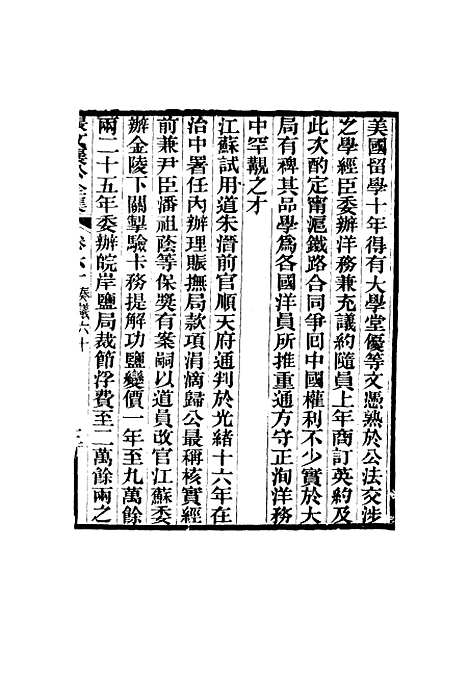 美國留學十年得有大學堂優等文憑熟於公法交涉
之學經臣委辦洋務兼充議約隨員上年商訂英約及
此次酌定甯滬鐵路合同爭回中國權利不少實於大
局有裨其品學爲各國洋員所推重通方守正洵洋務
中罕覯之才
江蘇試用道朱溍前官順天府通判於光緒十六年在
治中署任內辦理賑撫局款項涓滴歸公最稱核實經
前兼尹臣潘祖蔭等保奬有案嗣以道員改官江蘇委
辦金陵下關掣驗卡務提解功鹽變價一年至九萬餘
兩二十五年委辦皖岸鹽局裁節浮費至二萬餘兩之
張文襄公全集 卷六十 奏議六十